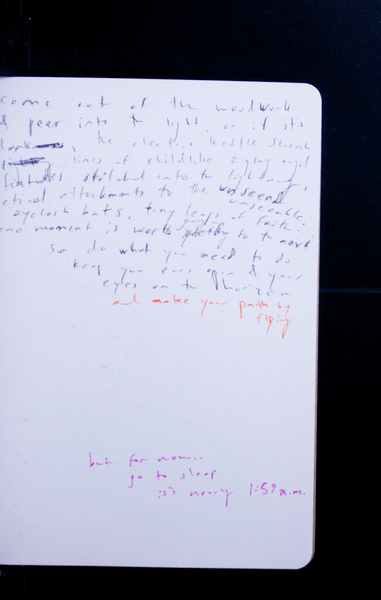 come out of the woodwork
& peer into the light, or if it's
dark, the electric kettle
lines of childlike zigzag
features stitched into the lightning,
attachments to the unseen
unseeable
eyelash bats, tiny leaps of faith
one moment is worth getting to the next
so do what you need to do
keep your ears open & your
eyes on the horizon
and make your path by
flying
but for now...
go to sleep
it's nearly 1:59 a.m.